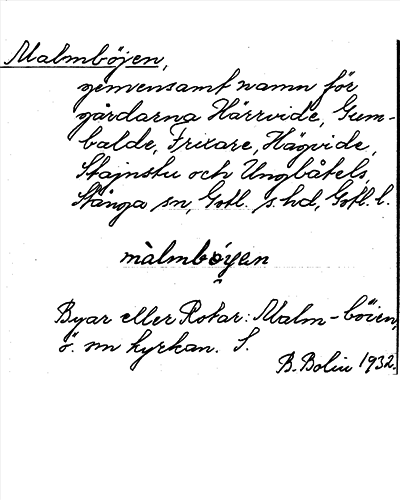 Malmböjen,
gemensamt namn för
gårdarna Härrvide, Gum-
balde, Frixare, Hägvide,
Stajnstu och Ungbåtels,
Stånga sn, Gotl. s. hd, Gotl. l.
màlmbǫyen
Byar eller Rotar: Malm-böien,
ö. om kyrkan. S.
B. Bolin 1932.